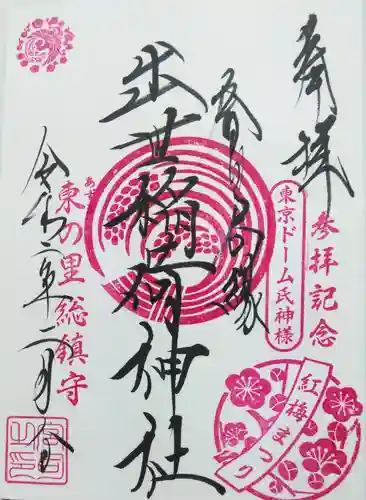 奉拝
参拝記念
東京ドーム氏神様
紅梅まつり
出世稲荷神社
東の里総鎮守
令和二年二月